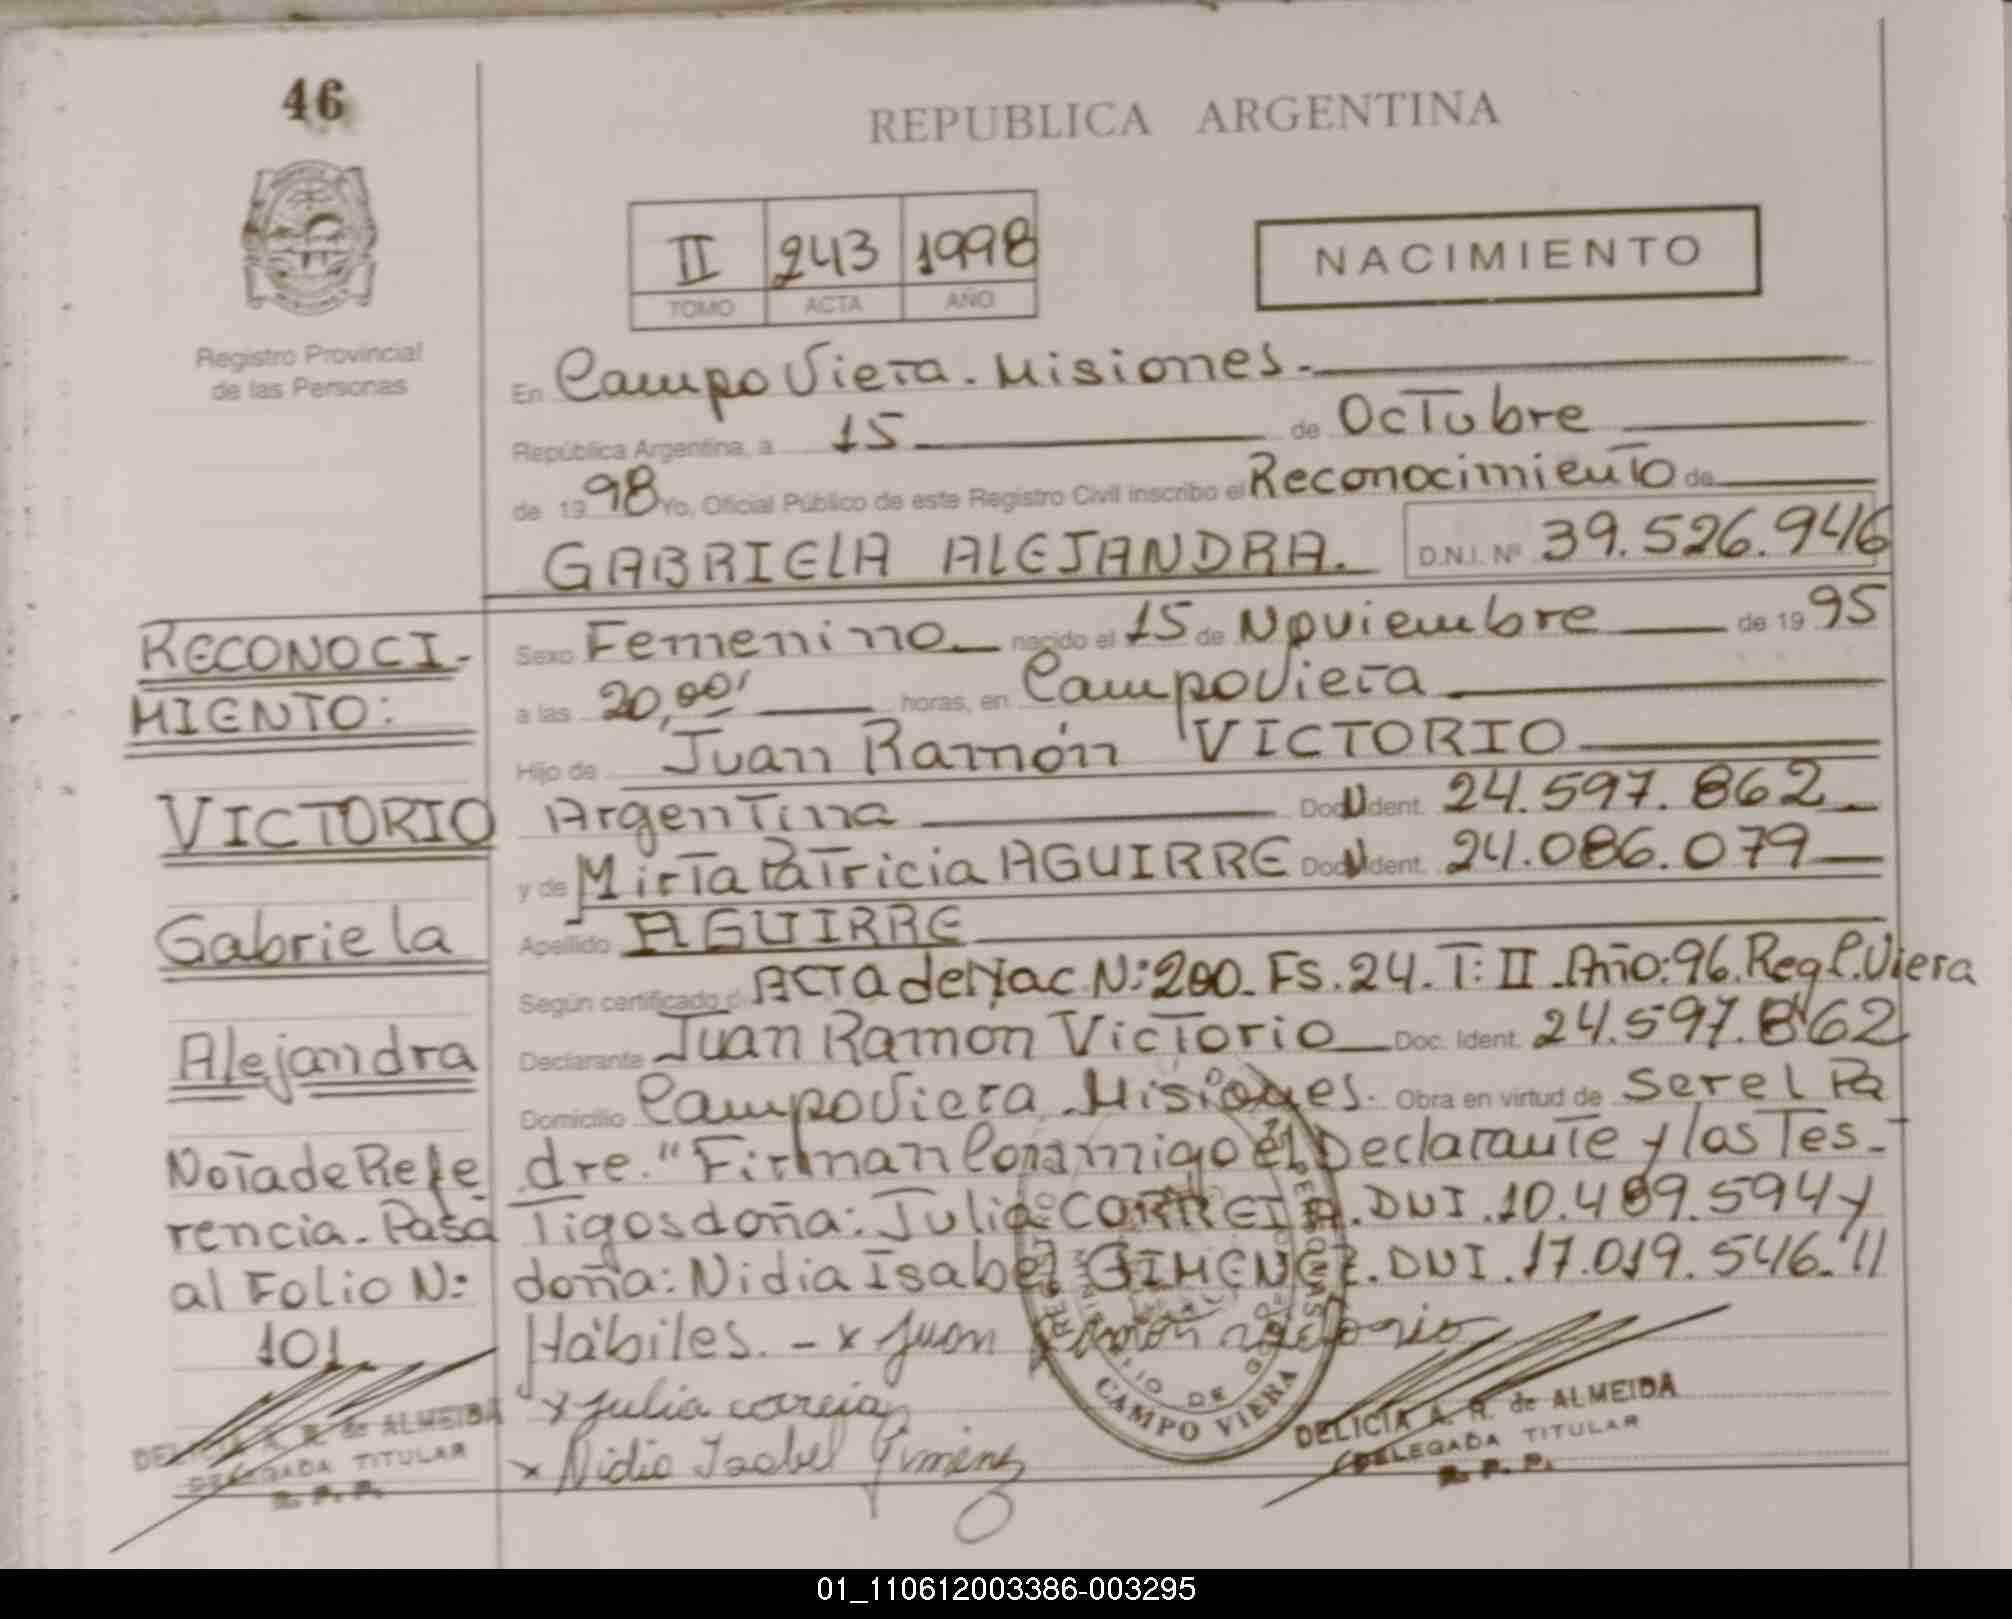 46
REPUBLICA ARGENTINA
II 243 1998
TOMO ACTA AÑO
NACIMIENTO
Registro Provincial
de las Personas
En Campo Viera. Misiones.
República Argentina, a 15 de Octubre
de 1998 Yo, Oficial Público de este Registro Civil inscribo el Reconocimiento de
GABRIELA ALEJANDRA. D.N.I. Nº 39.526.946
RECONOCI-
MIENTO:
VICTORIO
Gabriela
Alejandra
Nota de Refe
rencia. Pasa
al Folio N:
101
DELICIA A. R. de ALMEIDA
DELEGADA TITULAR
R. P. P.
Sexo Femenino nacido el 15 de Noviembre de 1995
a las 20,00' horas, en Campo Viera
Hijo de Juan Ramón VICTORIO
Argentina Doc. Ident. 24.597.862
y de Mirta Patricia AGUIRRE Doc. Ident. 24.086.079
Apellido AGUIRRE
Según certificado d ACTA de Nac N:200. Fs.24. T:II. Año:96. Reg C.Viera
Declarante Juan Ramon Victorio Doc. Ident. 24.597.862
Domicilio Campo Viera. Misiones. Obra en virtud de Ser el Pa
dre." Firman Conmigo el Declarante y las Tes-
Tigos doña: Julia CORREIA. DNI. 10.489.594 y
doña: Nidia Isabel GIMENEZ. DNI. 17.019.546. "
Hábiles. - x Juan Ramón Victorio
x Julia correia
x Nidia Isabel Gimenez
CAMPO VIERA
DELICIA A. R. de ALMEIDA
DELEGADA TITULAR
R. P. P.
01_110612003386-003295